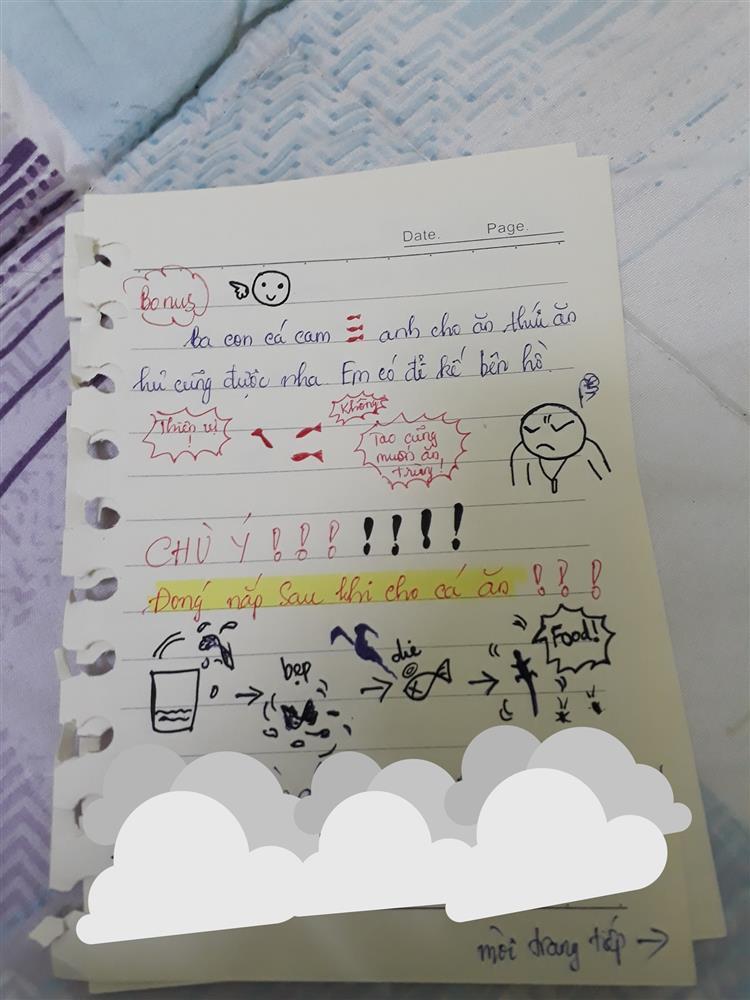 Date. Page.
Bonus
ba con cá cam anh cho ăn thức ăn
hủ cũng được nha. Em có để kế bên hồ.
Thiên vị
!
Không
Tao cũng
muốn ăn
trùng!
CHÚ Ý ! ! ! ! ! ! !
Đóng nắp sau khi cho cá ăn ! ! !
Food!
bẹp
die
mời trang tiếp →